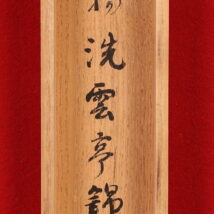 洗雲亭錦